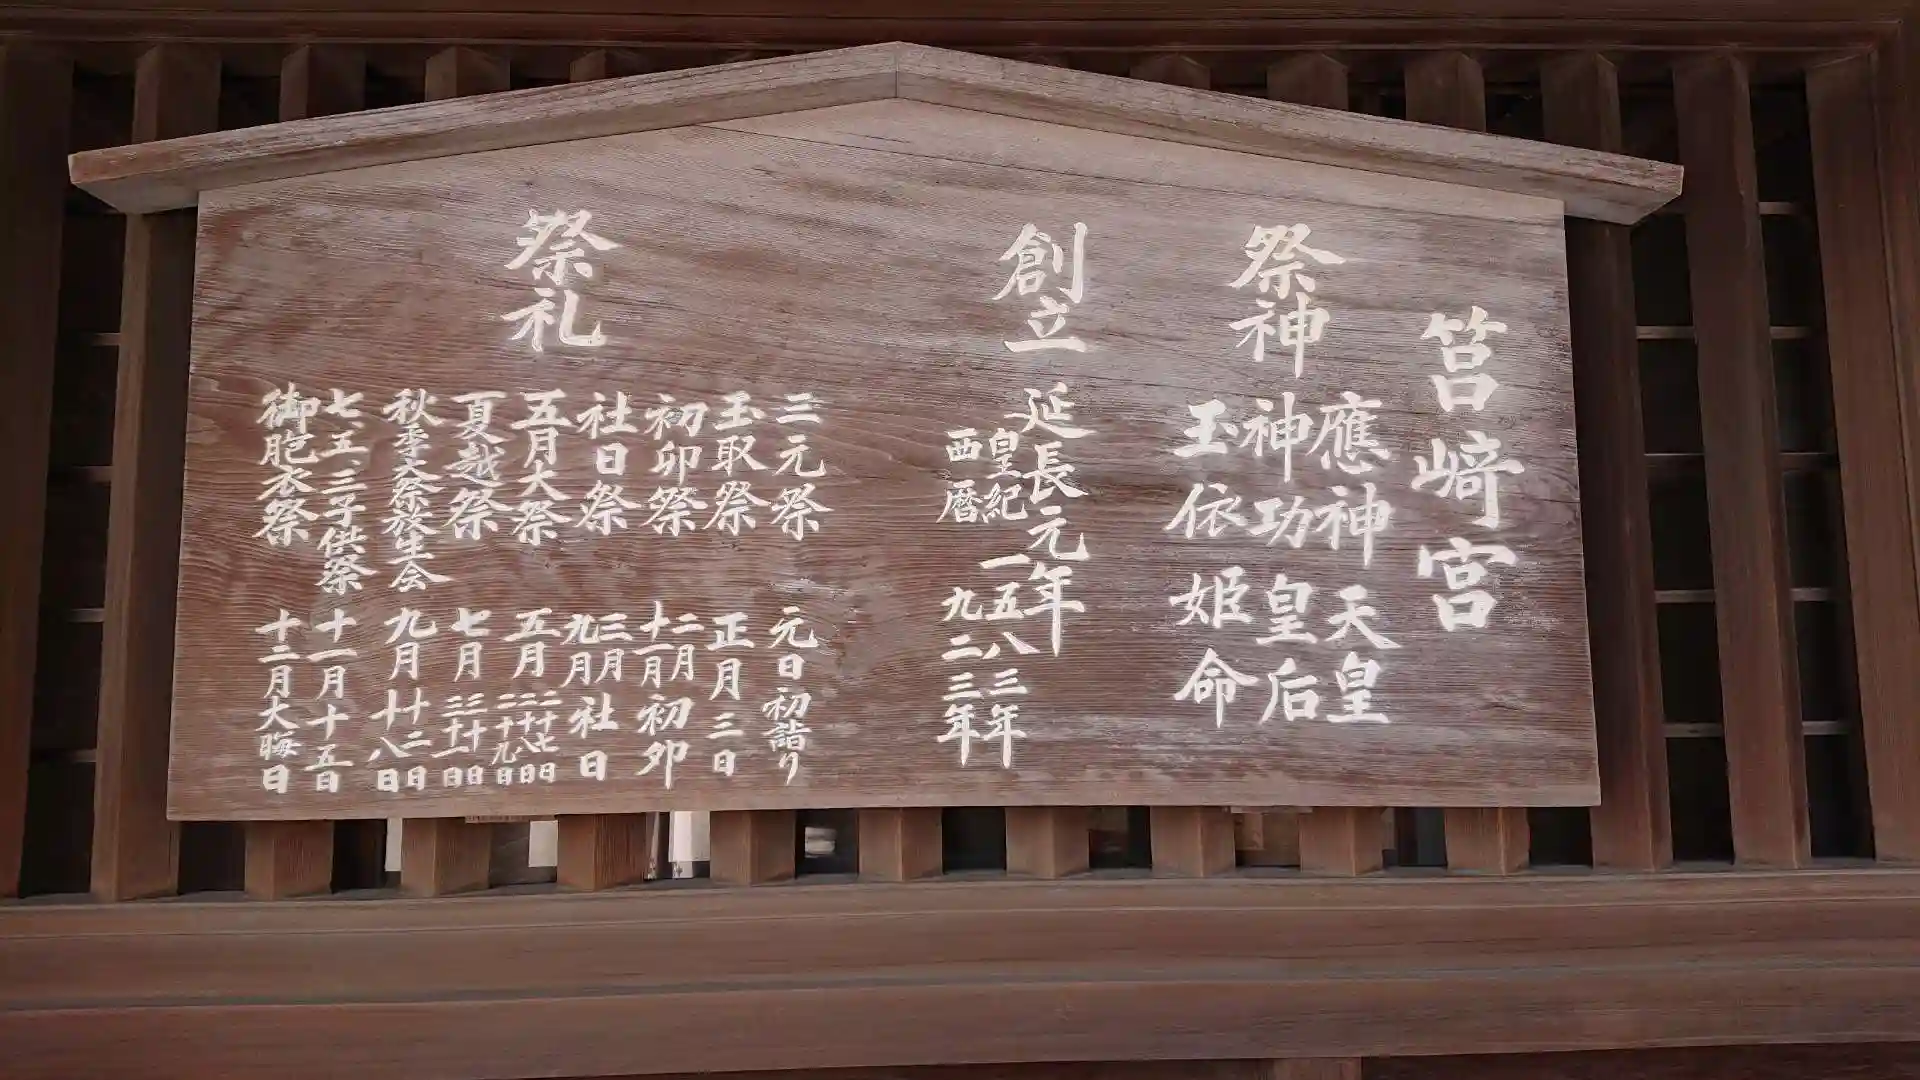 筥崎宮
祭神
應神天皇
神功皇后
玉依姫命
創立
延長元年
皇紀 一五八三年
西暦 九二三年
祭礼
三元祭 元日初詣り
玉取祭 正月三日
初卯祭 二月十一月初卯
社日祭 三月九月社日
五月大祭 五月二十七日二十八日二十九日
夏越祭 七月三十日三十一日
秋季大祭放生会 九月十二日十八日
七五三子供祭 十一月十五日
御胞衣祭 十二月大晦日